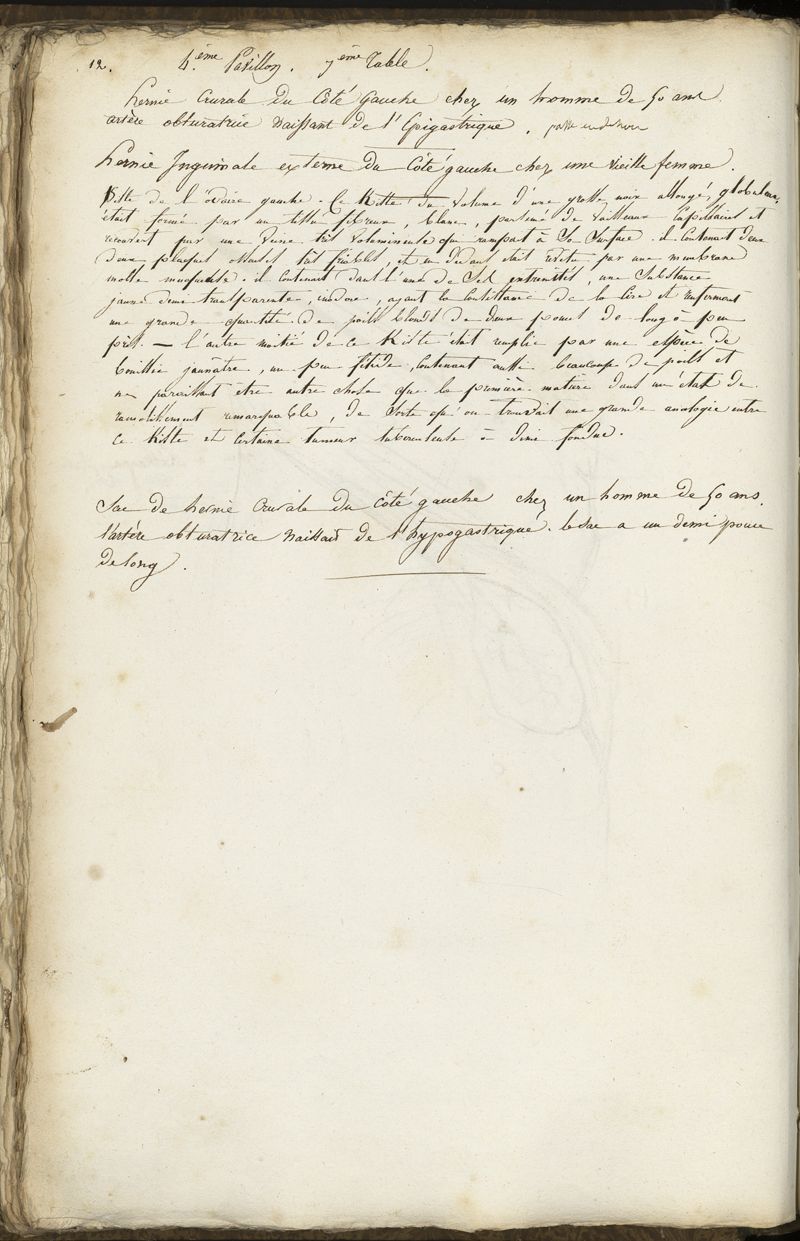 12. 4.ème Pavillon. 7ème Table.
hernie Crurale Du Côté Gauche chez un homme de 50 ans
artère obturatrice Naissant de l'Epigastrique. passe en dehors
hernie Inguinale externe Du Côté gauche chez une vieille femme.
Kiste de l'ovaire gauche. Ce Kiste du volume d'une grosse noix allongé, globuleux,
était formé par un tissu fibreux, blanc, parsemé de vaisseaux Capillaires et
recouvert par une Veine très volumineuse qui rampait à Sa Surface. il Contenait deux
deux plaques osseuses très friables, et en dedans était revêtu par une membrane
molle muqueuse. il contenait dans l'une de Ses extremités, une Substance
jaune demi transparente, inodore, ayant la Consistance de la Cire et renfermant
une grande quantité de poils blonds de deux pouces de long à peu
près. — l'autre moitié de ce Kiste était remplie par une espèce de
bouillie jaunâtre, un peu fétide, Contenant aussi beaucoup de poils et
ne paraissant être autre chose que la première matière dans un état de
ramollissement remarquable, de Sorte qu'on trouvait une grande analogie entre
ce Kiste et Certaine tumeur tuberculeuse à demi fondue.
Sac de hernie Crurale du côté gauche chez un homme de 50 ans.
l'artère obturatrice Naissait de l'hypogastrique. le Sac a un demi pouce
de long.